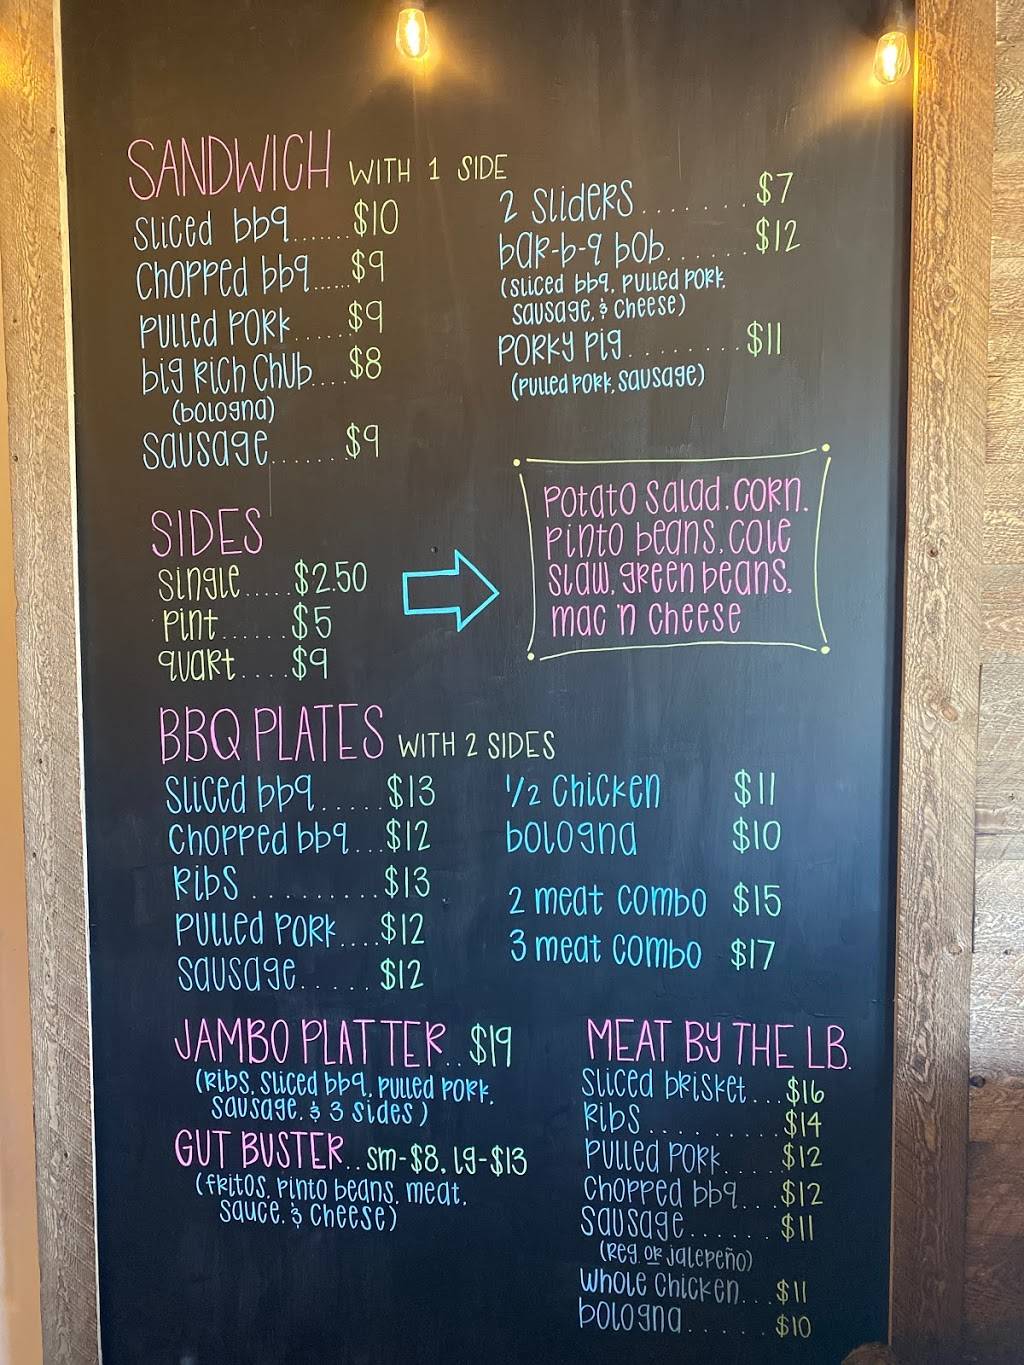 SANDWICH WITH 1 SIDE
sliced bbq....... $10
chopped bbq...... $9
pulled pork...... $9
big rich chub.... $8
(bologna)
sausage....... $9
2 sliders....... $7
bar-b-q bob...... $12
(sliced bbq, pulled pork,
sausage, & cheese)
porky pig........ $11
(pulled pork, sausage)
SIDES
single..... $2.50
pint...... $5
quart.... $9
potato salad, corn,
pinto beans, cole
slaw, green beans,
mac 'n cheese
BBQ PLATES WITH 2 SIDES
sliced bbq..... $13
chopped bbq... $12
ribs ......... $13
pulled pork.... $12
sausage...... $12
1/2 chicken $11
bologna $10
2 meat combo $15
3 meat combo $17
JAMBO PLATTER.. $19
(ribs, sliced bbq, pulled pork,
sausage, & 3 sides)
GUT BUSTER.. sm-$8, lg-$13
(fritos, pinto beans, meat,
sauce, & cheese)
MEAT BY THE LB.
sliced brisket... $16
ribs.......... $14
pulled pork.... $12
chopped bbq... $12
sausage...... $11
(reg. or jalepeño)
whole chicken... $11
bologna...... $10